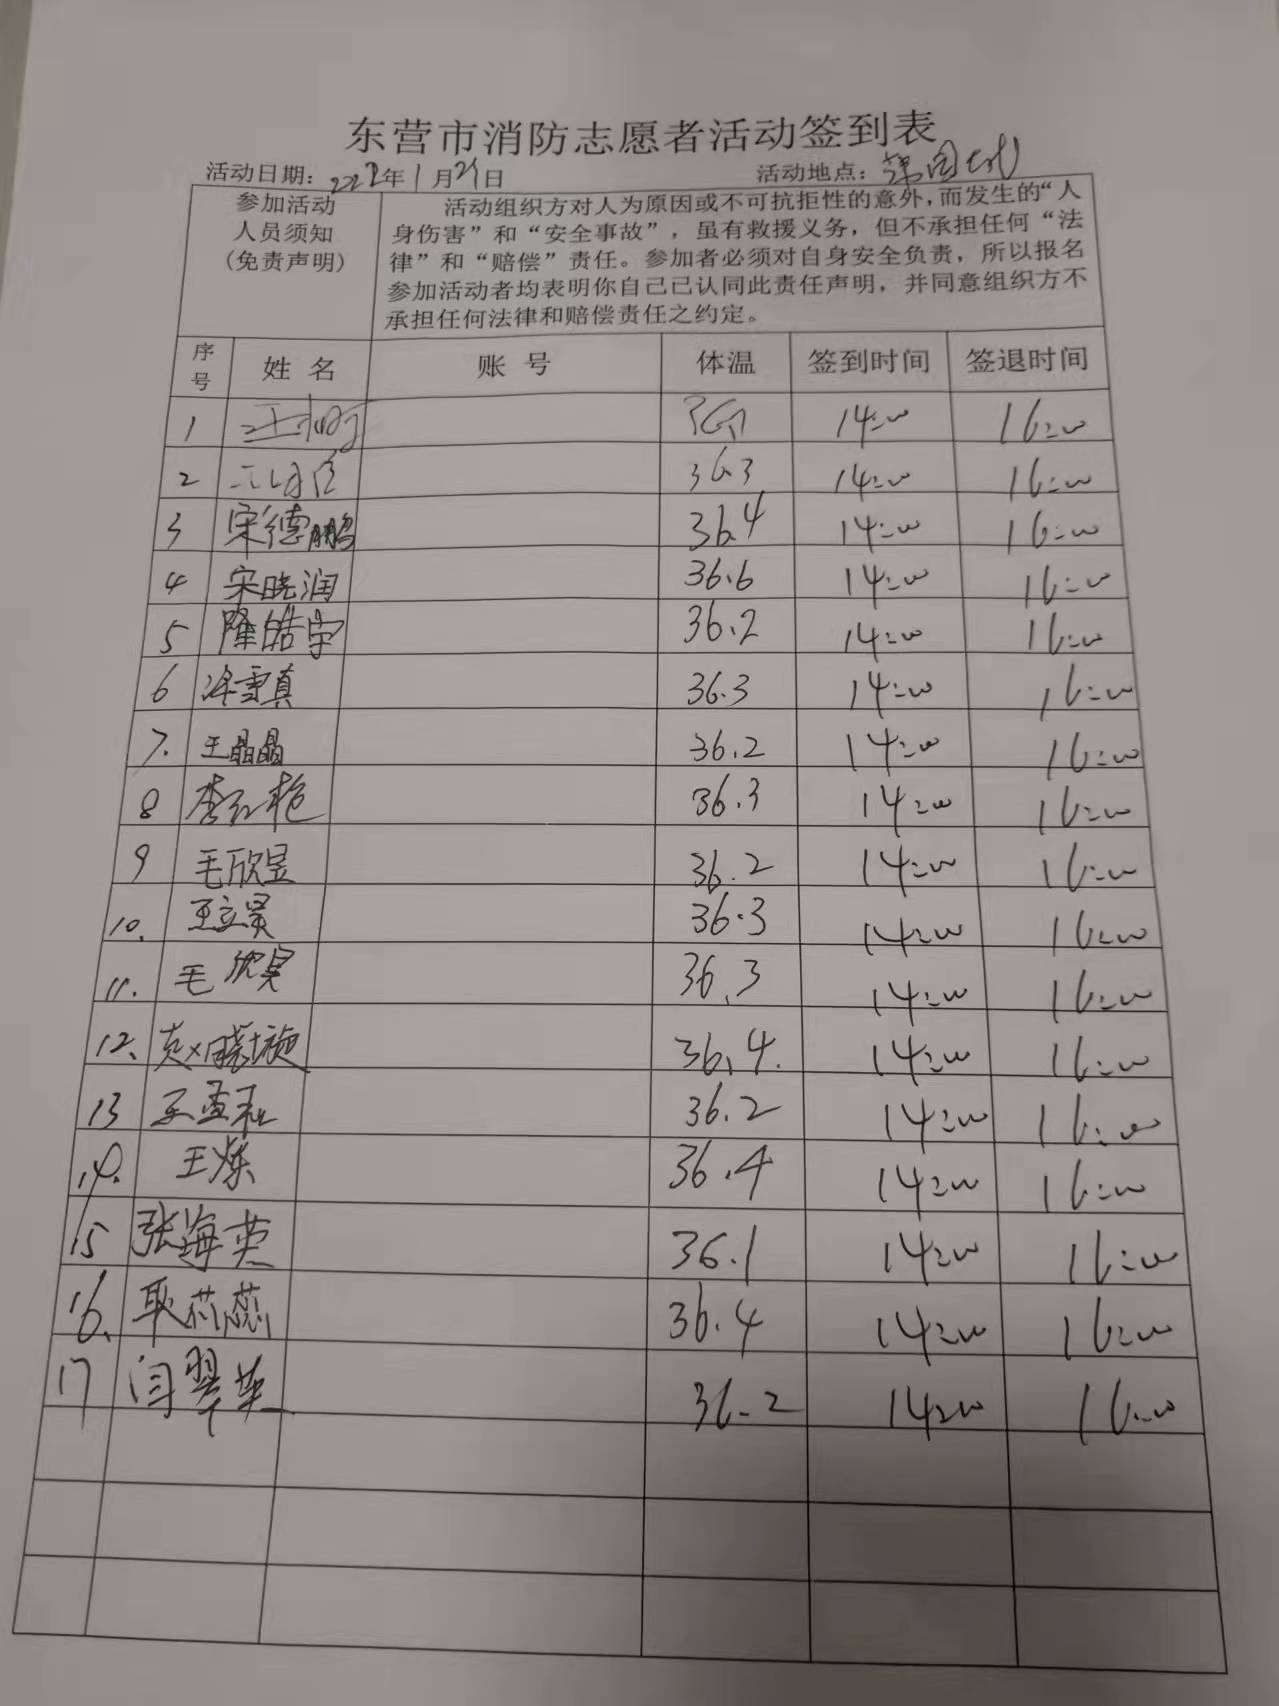 东营市消防志愿者活动签到表
活动日期：2022年1月21日 活动地点：
参加活动
人员须知
(免责声明)
活动组织方对人为原因或不可抗拒性的意外,而发生的“人
身伤害”和“安全事故”，虽有救援义务，但不承担任何“法
律”和“赔偿”责任。参加者必须对自身安全负责，所以报名
参加活动者均表明你自己已认同此责任声明，并同意组织方不
承担任何法律和赔偿责任之约定。
序号 姓名 账号 体温 签到时间 签退时间
1 14:00 16:00
2 36.3 14:00 16:00
3 宋德鹏 36.4 14:00 16:00
4 宋晓润 36.6 14:00 16:00
5 隆皓宇 36.2 14:00 16:00
6 36.3 14:00 16:00
7. 王晶晶 36.2 14:00 16:00
8 李红艳 36.3 14:00 16:00
9 毛欣昱 36.2 14:00 16:00
10. 王立昊 36.3 14:00 16:00
11. 毛欣昊 36.3 14:00 16:00
12. 36.4. 14:00 16:00
13 36.2 14:00 16:00
14. 王烁 36.4 14:00 16:00
15 张海英 36.1 14:00 16:00
16. 耿芯蕊 36.4 14:00 16:00
17 闫翠英 36.2 14:00 16:00